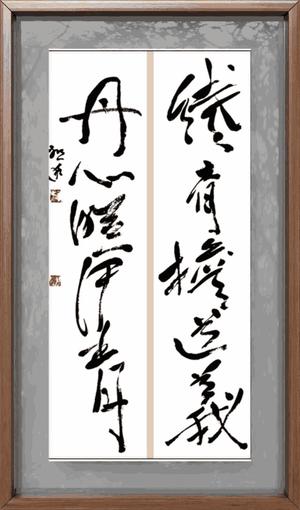 鐵肩擔道義
丹心照汗青